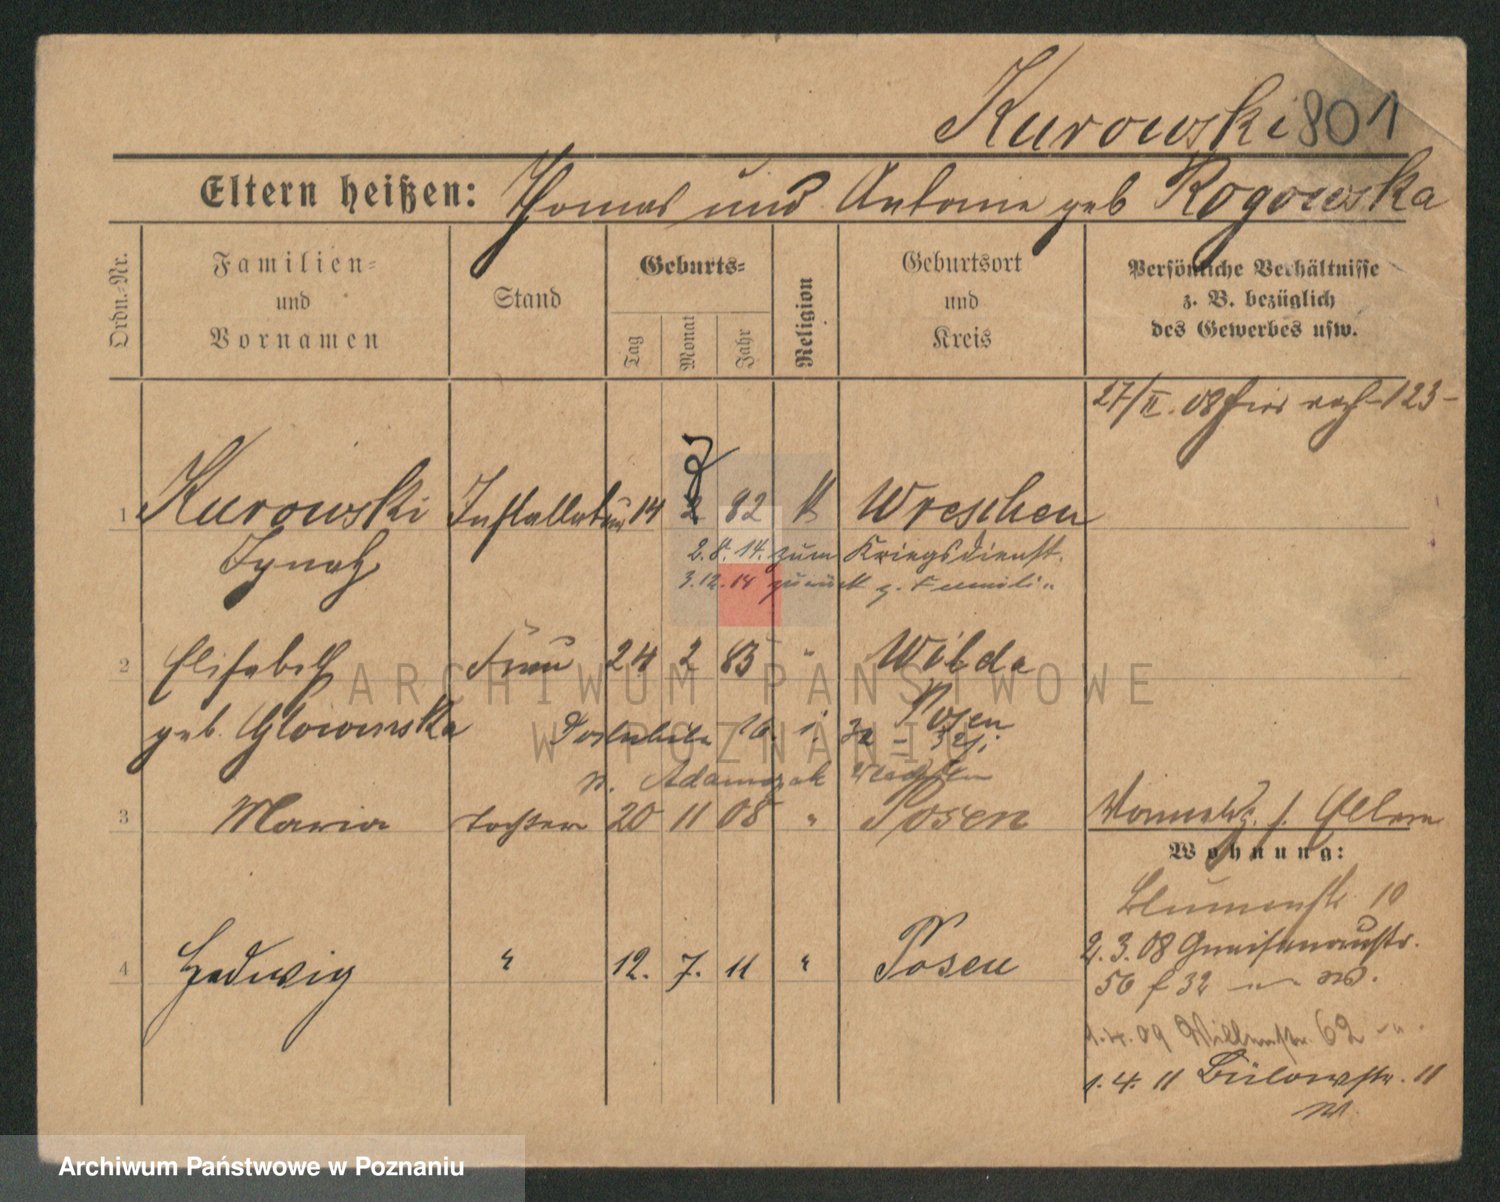 Kurowski 801
Eltern heißen: Thomas und Antonie geb Rogowska
Ordn.-Nr.
Familien-
und
Vornamen
Stand
Geburts-
Tag
Monat
Jahr
Religion
Geburtsort
und
Kreis
Persönliche Verhältnisse
z. B. bezüglich
des Gewerbes usw.
27/II. 08 hier 123
1 Kurowski Installateur 14 82 k Wreschen
Ignatz
2.8.14. zum Kriegsdienst.
3.12.14 zurück z. Familie
2 Elisabeth Frau 24 2 83 " Wilda
geb. Glowinska
Posen
Adamczak
3 Maria Tochter 20 11 08 " Posen
Wohnung:
Blumenstr 10
2.3.08 Gneisenaustr.
56 f 32
4 Hedwig " 12. 7. 11 " Posen
1.4.09 62
1.4.11 Bülowstr. 11
W.
ARCHIWUM PAŃSTWOWE
W POZNANIU
Archiwum Państwowe w Poznaniu